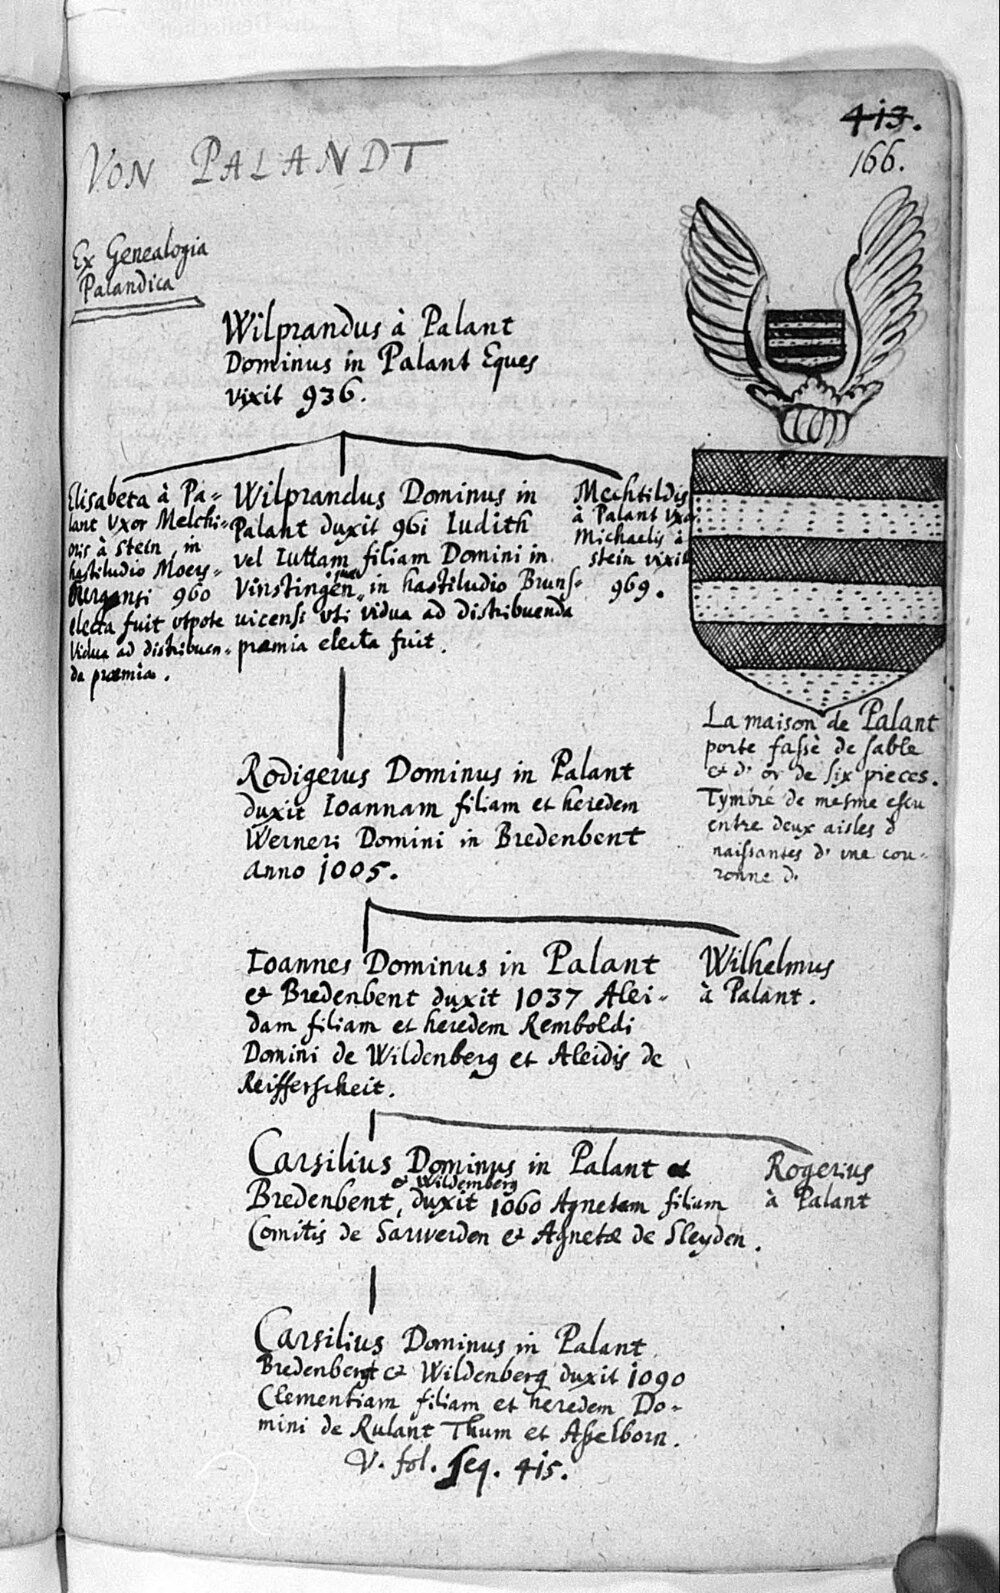 413.
166.
VON PALANDT
Ex Genealogia
Palandica
Wilprandus à Palant
Dominus in Palant Eques
vixit 936.
Elisabeta à Pa-
lant Vxor Melchi-
oris à Stein, in
hastiludio Moers-
burgensi 960
electa fuit vtpote
vidua ad distribuen-
da præmia.
Wilprandus Dominus in
Palant duxit 961 Iudith
vel Iuttam filiam Domini in
Vinstingen, in hastiludio Bruns-
uicensi vti vidua ad distribuenda
præmia electa fuit.
Mechtildis
à Palant vxor
Michaelis à
Stein vixit
969.
La maison de Palant
porte fassé de sable
et d'or de six pieces.
Tymbré de mesme escu
entre deux aisles d
naissantes d'vne cou-
ronne d.
Rodigerus Dominus in Palant
duxit Ioannam filiam et heredem
Werneri Domini in Bredenbent
anno 1005.
Ioannes Dominus in Palant
et Bredenbent duxit 1037 Alei-
dam filiam et heredem Remboldi
Domini de Wildenberg et Aleidis de
Reifferscheit.
Wilhelmus
à Palant.
Carsilius Dominus in Palant et
& Wildemberg
Bredenbent, duxit 1060 Agnetam filiam
Comitis de Sarwerden et Agnetæ de Sleyden.
Rogerius
à Palant
Carsilius Dominus in Palant
Bredenbent & Wildenberg duxit 1090
Clementiam filiam et heredem Do-
mini de Rulant Thum et Asselborn.
V. fol. seq. 415.